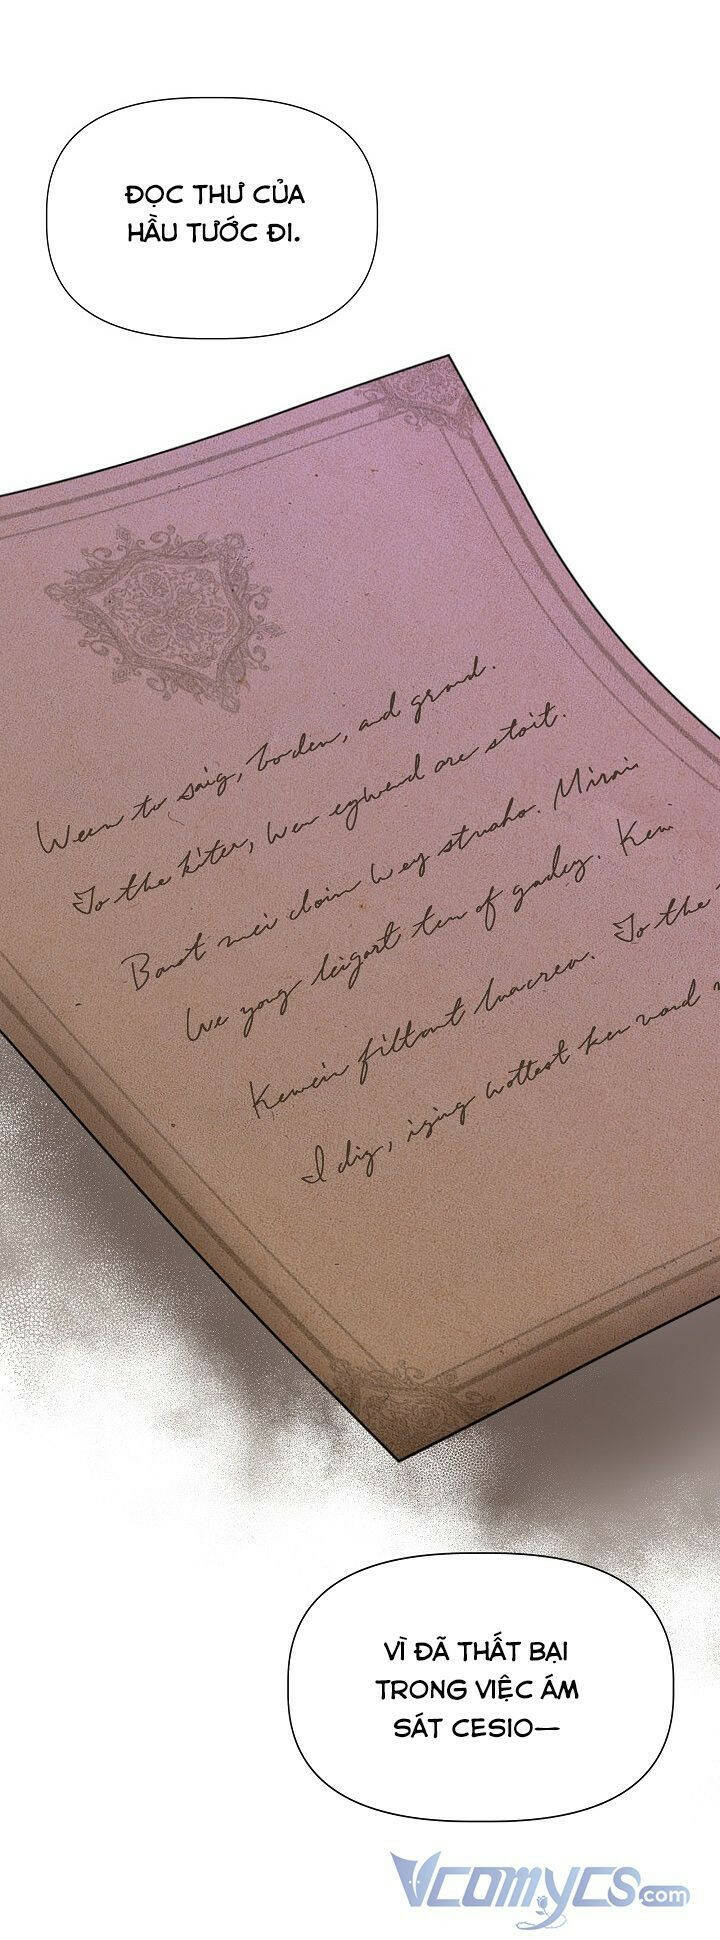 ĐỌC THƯ CỦA
HẦU TƯỚC ĐI.
Ween to saig, boden, and grond.
To the kiter, wen egwend are stoit.
Banot mei cloin wey strusho. Mirai
We yong leigart ten of gadey. Kem
Kewein filtont luacrea. To the
I dig, iging wottest ken vard
VÌ ĐÃ THẤT BẠI
TRONG VIỆC ÁM
SÁT CESIO—
VCOMYCS.com